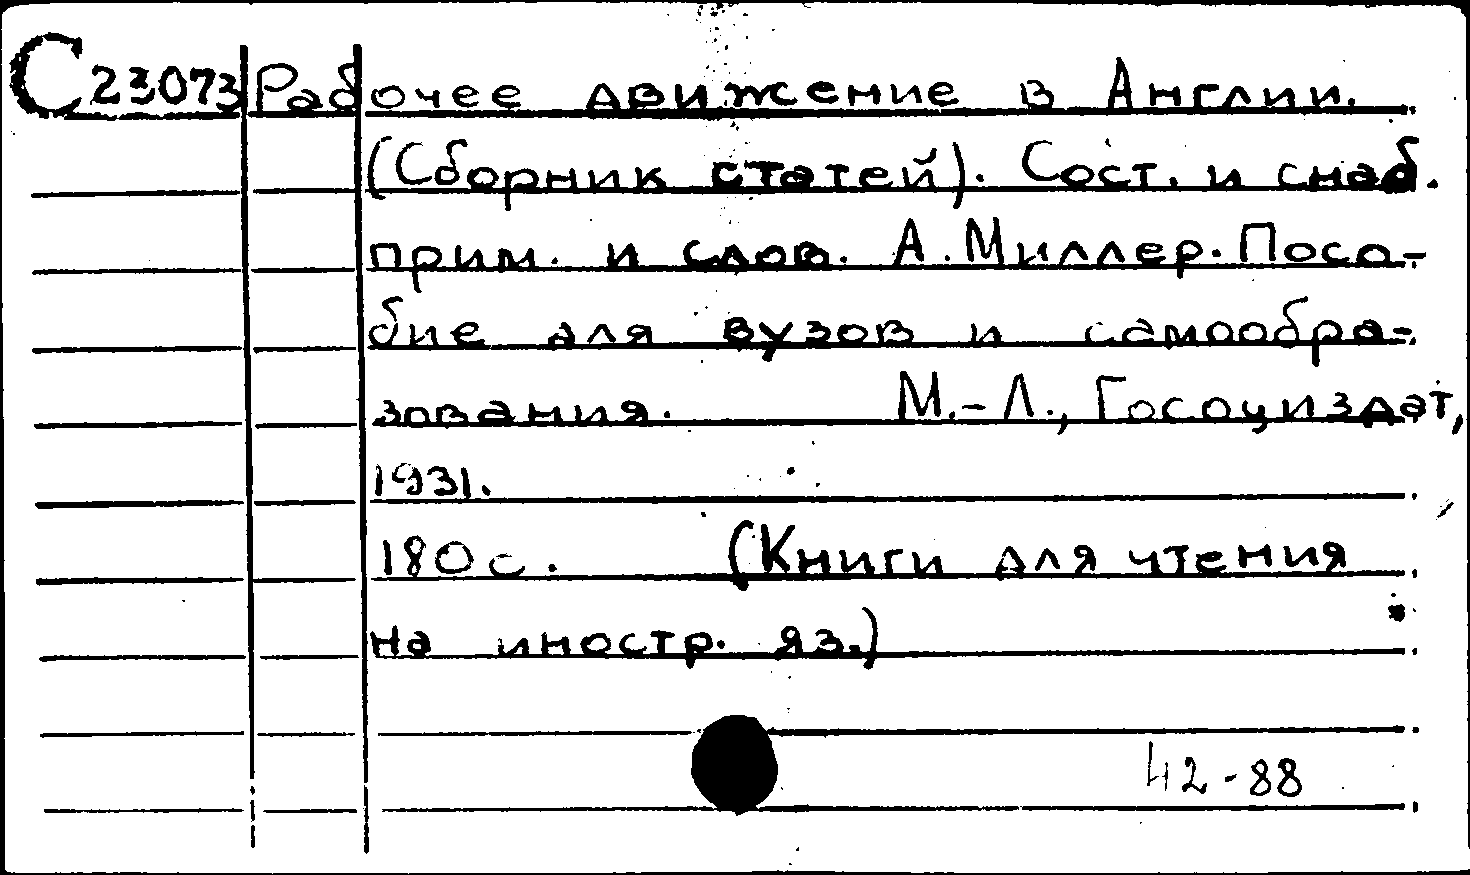 С 23073 Рабочее движение в Англии.
(Сборник статей). Сост. и снаб.
прим. и слов. А. Миллер. Посо-
бие для вузов и самообра-
зования. М.-Л., Госоциздат,
1931.
180 с. (Книги для чтения
на иностр. яз.)
42-88